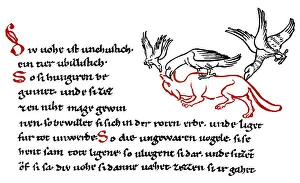 Diu uohe ist unchustich.
ein tier ubillistich.
So si hungeren be
ginnet. unde si ez
zen niht mage gewin
nen. so bewillet si sich in der roten erde. unde liget
fur tot unwerde. So die ungewaren uogele. si se
hent sam tote ligen. so uliugent si dar. unde sitzet
uf si sa. diu uohe si danne uahet zezzen si ir gahet